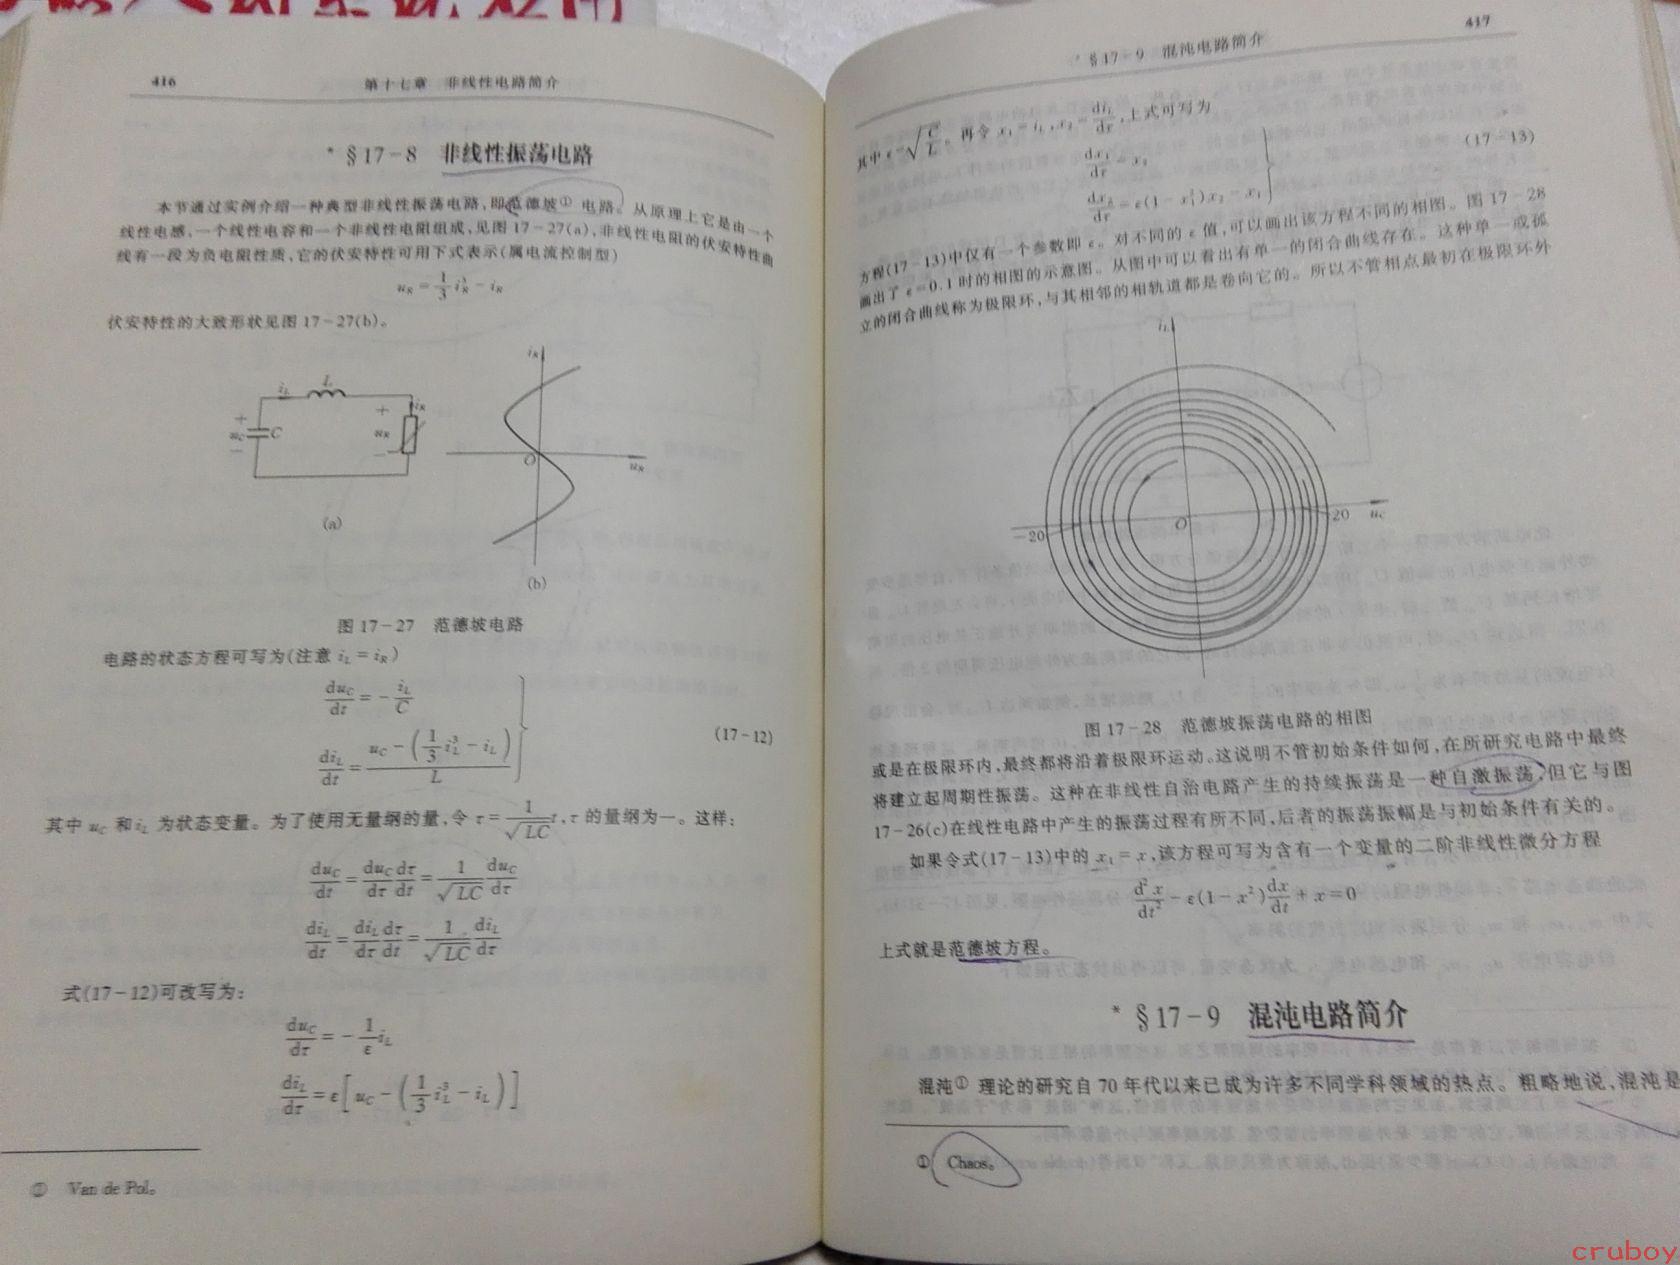 416
第十七章 非线性电路简介
* §17-8 非线性振荡电路
本节通过实例介绍一种典型非线性振荡电路,即范德坡① 电路。从原理上它是由一个
线性电感,一个线性电容和一个非线性电阻组成,见图 17-27(a),非线性电阻的伏安特性曲
线有一段为负电阻性质,它的伏安特性可用下式表示(属电流控制型)
u_R = 1/3 i_R^3 - i_R
伏安特性的大致形状见图 17-27(b)。
i_L L i_R
+ u_C - C + u_R -
(a)
i_R
O u_R
(b)
图 17-27 范德坡电路
电路的状态方程可写为(注意 i_L = i_R)
du_C/dt = - i_L/C
di_L/dt = [u_C - (1/3 i_L^3 - i_L)]/L
(17-12)
其中 u_C 和 i_L 为状态变量。为了使用无量纲的量,令 τ = 1/√LC t,τ 的量纲为一。这样:
du_C/dt = du_C/dτ dτ/dt = 1/√LC du_C/dτ
di_L/dt = di_L/dτ dτ/dt = 1/√LC di_L/dτ
式(17-12)可改写为:
du_C/dτ = - 1/ε i_L
di_L/dτ = ε[u_C - (1/3 i_L^3 - i_L)]
① Van de Pol。
* §17-9 混沌电路简介
417
其中 ε=√C/L。再令 x_1 = i_L, x_2 = di_L/dτ,上式可写为
dx_1/dτ = x_2
dx_2/dτ = ε(1 - x_1^2)x_2 - x_1
(17-13)
方程(17-13)中仅有一个参数即 ε。对不同的 ε 值,可以画出该方程不同的相图。图 17-28
画出了 ε=0.1 时的相图的示意图。从图中可以看出有单一的闭合曲线存在。这种单一或孤
立的闭合曲线称为极限环,与其相邻的相轨道都是卷向它的。所以不管相点最初在极限环外
i_L
-20 O 20 u_C
图 17-28 范德坡振荡电路的相图
或是在极限环内,最终都将沿着极限环运动。这说明不管初始条件如何,在所研究电路中最终
将建立起周期性振荡。这种在非线性自治电路产生的持续振荡是一种自激振荡,但它与图
17-26(c)在线性电路中产生的振荡过程有所不同,后者的振荡振幅是与初始条件有关的。
如果令式(17-13)中的 x_1 = x,该方程可写为含有一个变量的二阶非线性微分方程
d^2x/dt^2 - ε(1 - x^2)dx/dt + x = 0
上式就是范德坡方程。
* §17-9 混沌电路简介
混沌① 理论的研究自 70 年代以来已成为许多不同学科领域的热点。粗略地说,混沌是
① Chaos。
cruboy